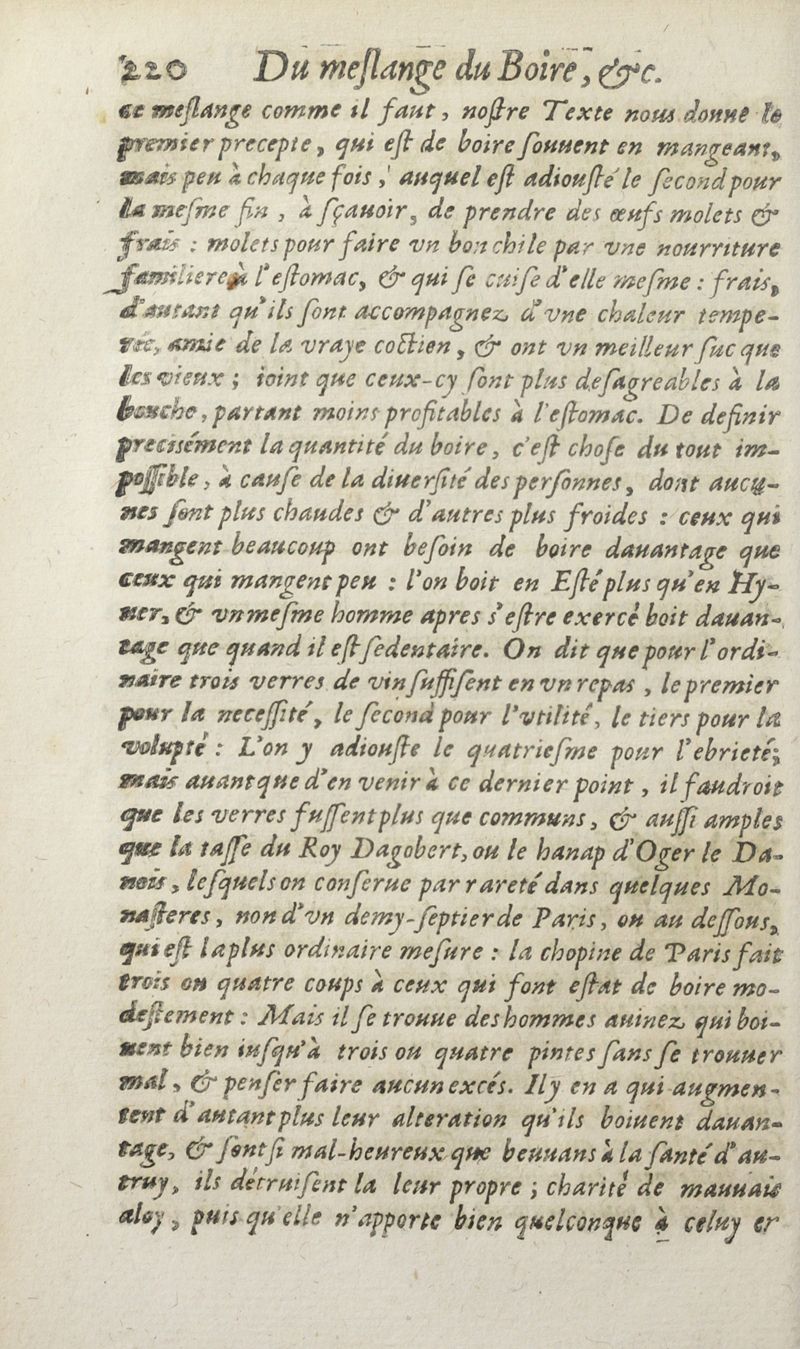 220 Du meſlange du Boire, &c.
ce meſlange comme il faut, noſtre Texte nous donne le
premier precepte, qui eſt de boire ſouuent en mangeant,
mais peu à chaque fois, auquel eſt adiouſté le ſecond pour
la meſme fin, à ſçauoir, de prendre des œufs molets &
frais : molets pour faire vn bon chile par vne nourriture
familiere à l'eſtomac, & qui ſe cuiſe d'elle meſme : frais,
d'autant qu'ils ſont accompagnez d'vne chaleur tempe-
rée, amie de la vraye coction, & ont vn meilleur ſuc que
les vieux ; ioint que ceux-cy ſont plus deſagreables à la
bouche, partant moins profitables à l'eſtomac. De definir
precisément la quantité du boire, c'eſt choſe du tout im-
poſſible, à cauſe de la diuerſité des perſonnes, dont aucu-
nes ſont plus chaudes & d'autres plus froides : ceux qui
mangent beaucoup ont beſoin de boire dauantage que
ceux qui mangent peu : l'on boit en Eſté plus qu'en Hy-
uer, & vn meſme homme apres s'eſtre exercé boit dauan-
tage que quand il eſt ſedentaire. On dit que pour l'ordi-
naire trois verres de vin ſuffiſent en vn repas, le premier
pour la neceſſité, le ſecond pour l'vtilité, le tiers pour la
volupté : L'on y adiouſte le quatrieſme pour l'ebrieté;
mais auant que d'en venir à ce dernier point, il faudroit
que les verres fuſſent plus que communs, & auſſi amples
que la taſſe du Roy Dagobert, ou le hanap d'Oger le Da-
nois, leſquels on conſerue par rareté dans quelques Mo-
naſteres, non d'vn demy-ſeptier de Paris, ou au deſſous,
qui eſt la plus ordinaire meſure : la chopine de Paris fait
trois ou quatre coups à ceux qui font eſtat de boire mo-
deſtement : Mais il ſe trouue des hommes auinez qui boi-
uent bien iuſqu'à trois ou quatre pintes ſans ſe trouuer
mal, & penſer faire aucun excés. Il y en a qui augmen-
tent d'autant plus leur alteration qu'ils boiuent dauan-
tage, & ſont ſi mal-heureux que beuuans à la ſanté d'au-
truy, ils détruiſent la leur propre ; charité de mauuais
aloy, puis qu'elle n'apporte bien quelconque à celuy en